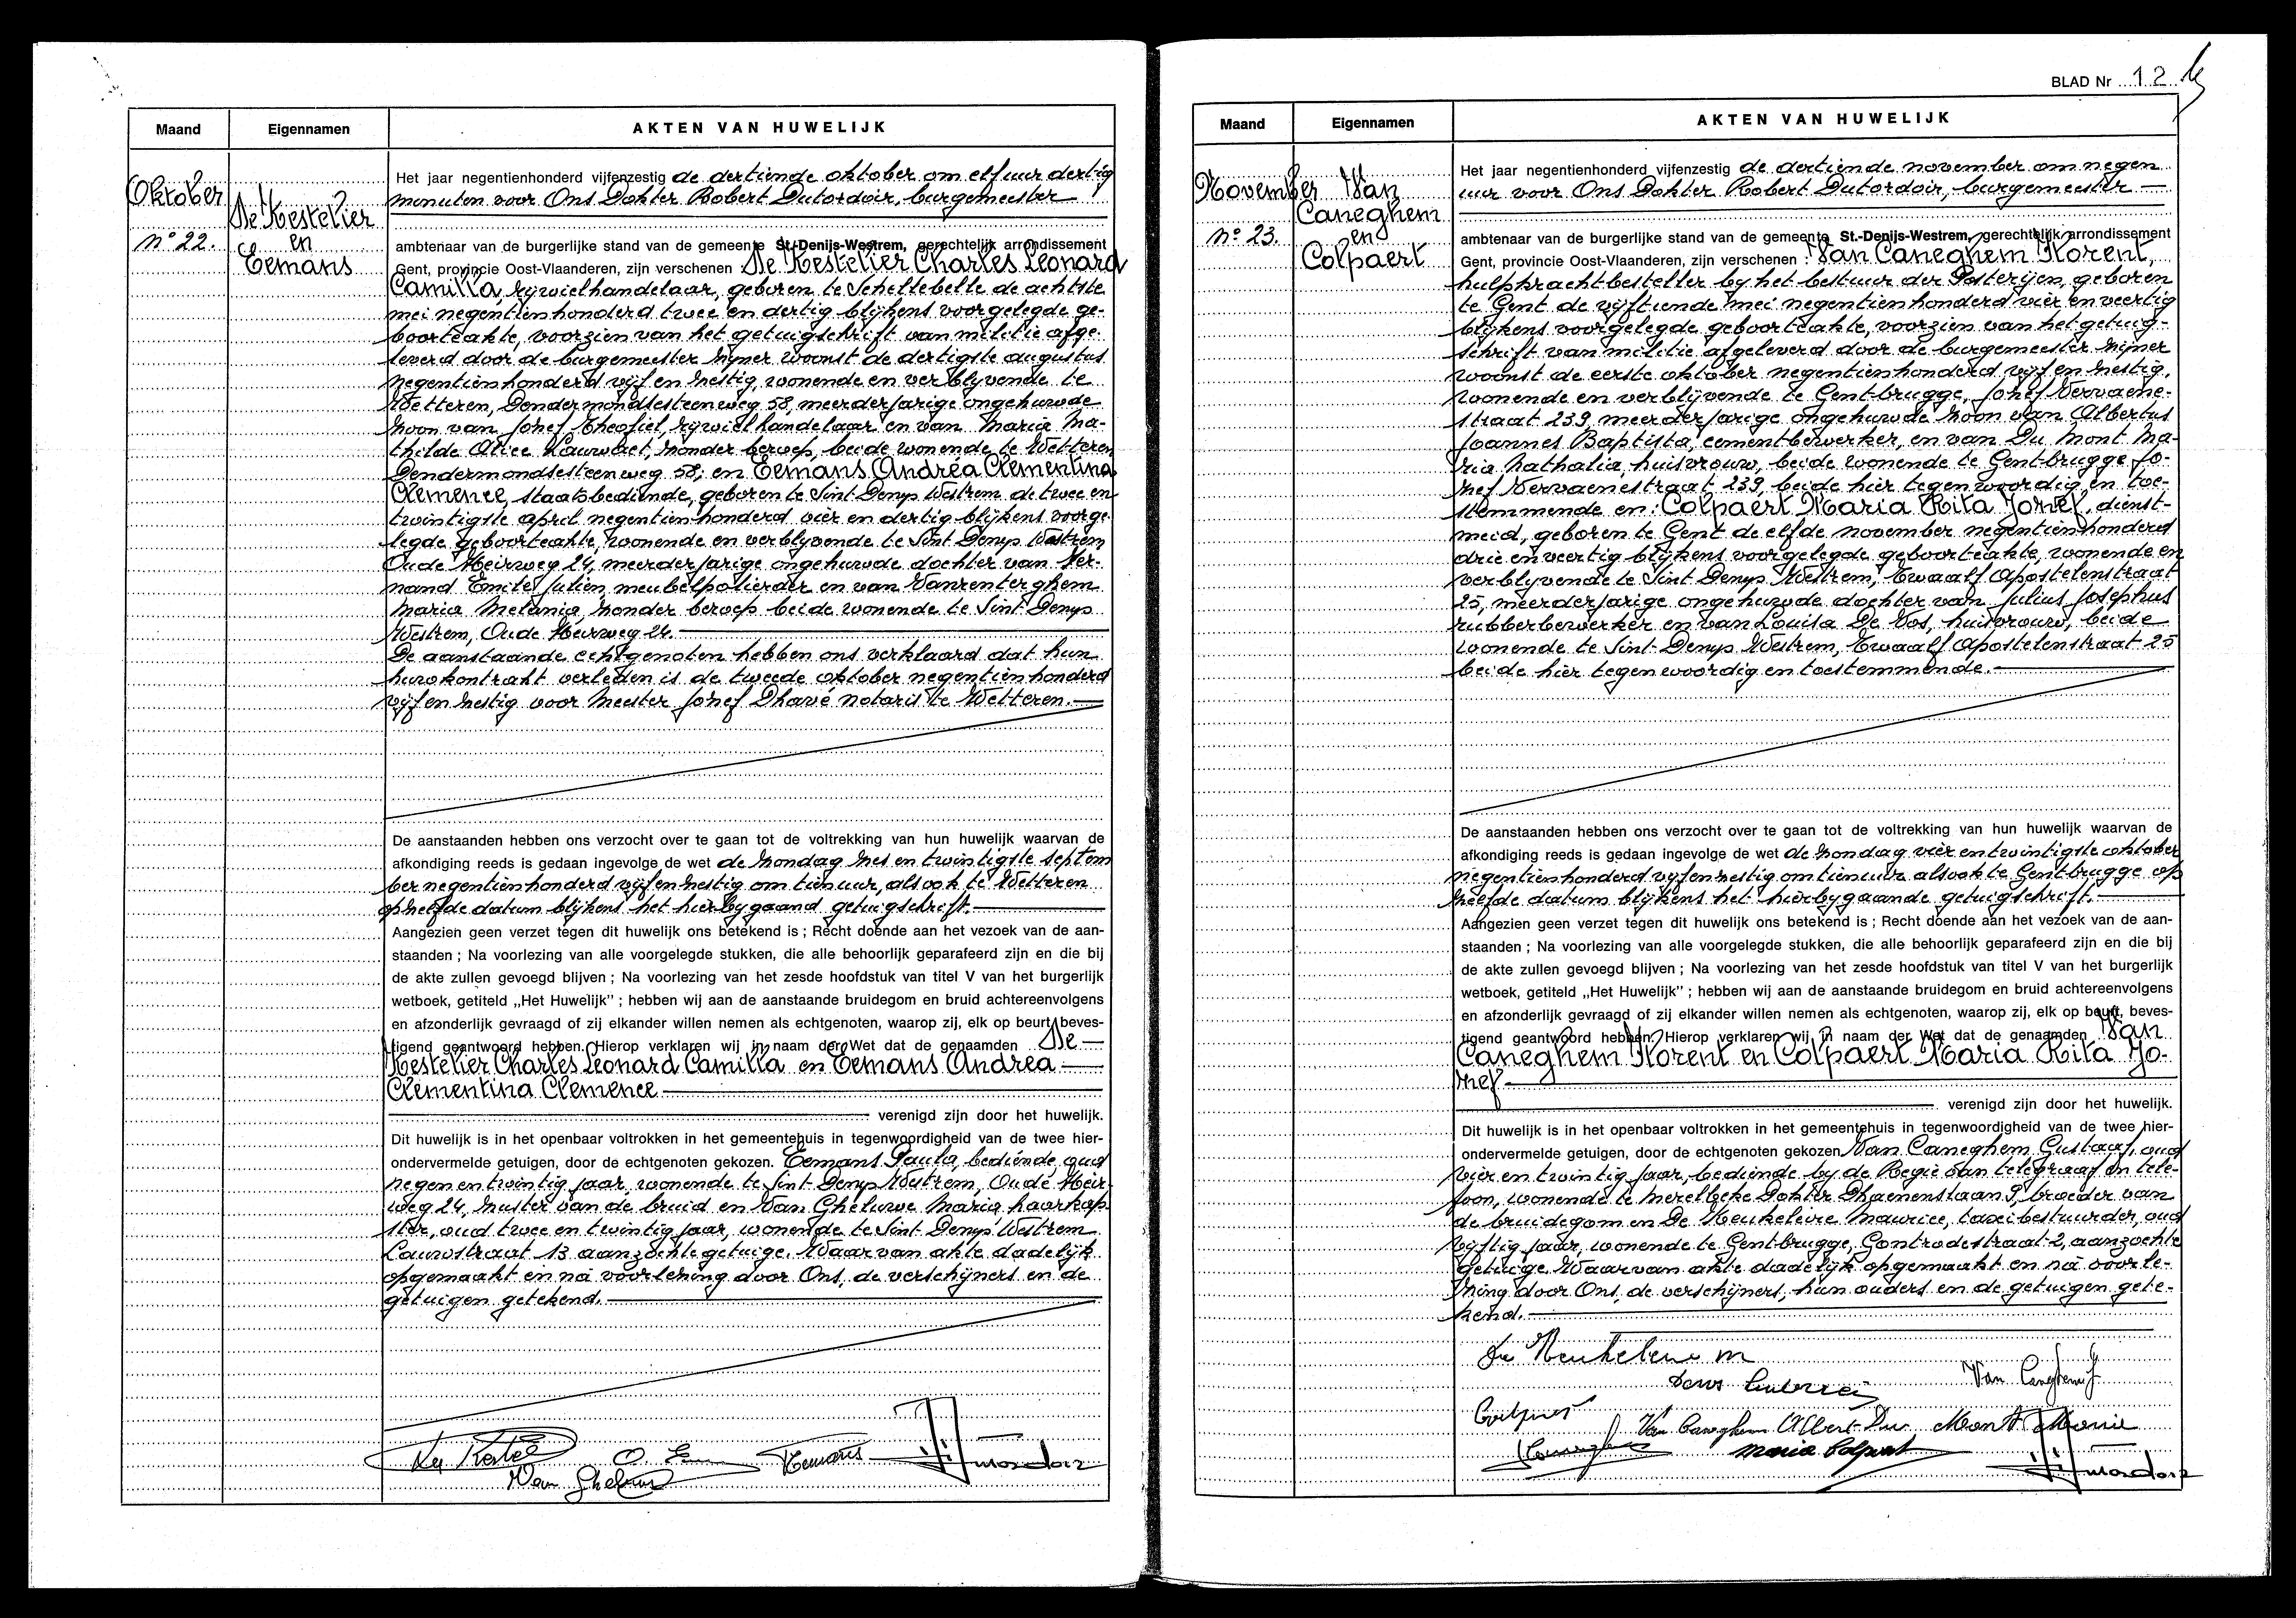 Maand
Eigennamen
AKTEN VAN HUWELIJK
Oktober
n° 22.
De Kestelier
en
Eemans
Het jaar negentienhonderd vijfenzestig de dertiende oktober om elf uur dertig
minuten voor Ons Dokter Robert Dutordoir, burgemeester
ambtenaar van de burgerlijke stand van de gemeente St.-Denijs-Westrem, gerechtelijk arrondissement
Gent, provincie Oost-Vlaanderen, zijn verschenen De Kestelier Charles Leonard
Camilla, rijwielhandelaar, geboren te Schellebelle de achtste
mei negentienhonderd twee en dertig blijkens voorgelegde ge-
boorteakte, voorzien van het getuigschrift van militie afge-
leverd door de burgemeester zijner woonst de dertigste augustus
negentienhonderd vijf en zestig, wonende en verblijvende te
Wetteren, Dendermondsesteenweg 58, meerderjarige ongehuwde
zoon van Jozef Theofiel, rijwielhandelaar en van Maria Ma-
thilde Alice Lauwaet, zonder beroep, beide wonende te Wetteren
Dendermondsesteenweg 58; en Eemans Andréa Clementina
Clemence, staatsbediende, geboren te Sint Denys Westrem de twee en
twintigste april negentienhonderd vier en dertig blijkens voorge-
legde geboorteakte, wonende en verblyvende te Sint Denys Westrem
Oude Heirweg 24, meerderjarige ongehuwde dochter van Fer-
nand Emile Julien, meubelpolierder en van Vanrenterghem
Maria Melania, zonder beroep beide wonende te Sint Denys
Westrem, Oude Heirweg 24.
De aanstaande echtgenoten hebben ons verklaard dat hun
huwkontrakt verleden is de tweede oktober negentienhonderd
vijf en zestig voor Meester Jozef Dhavé notaris te Wetteren.
De aanstaanden hebben ons verzocht over te gaan tot de voltrekking van hun huwelijk waarvan de
afkondiging reeds is gedaan ingevolge de wet de zondag zes en twintigste septem
ber negentienhonderd vijf en zestig om tien uur, alsook te Wetteren
op zelfde datum blijkens het hierbygaand getuigschrift.
Aangezien geen verzet tegen dit huwelijk ons betekend is ; Recht doende aan het vezoek van de aan-
staanden ; Na voorlezing van alle voorgelegde stukken, die alle behoorlijk geparafeerd zijn en die bij
de akte zullen gevoegd blijven ; Na voorlezing van het zesde hoofdstuk van titel V van het burgerlijk
wetboek, getiteld „Het Huwelijk" ; hebben wij aan de aanstaande bruidegom en bruid achtereenvolgens
en afzonderlijk gevraagd of zij elkander willen nemen als echtgenoten, waarop zij, elk op beurt, beves-
tigend geantwoord hebben. Hierop verklaren wij in naam der Wet dat de genaamden De
Kestelier Charles Leonard Camilla en Eemans Andréa
Clémentina Clemence
verenigd zijn door het huwelijk.
Dit huwelijk is in het openbaar voltrokken in het gemeentehuis in tegenwoordigheid van de twee hier-
ondervermelde getuigen, door de echtgenoten gekozen. Eemans Paula, bediende, oud
negen en twintig jaar, wonende te Sint Denys Westrem, Oude Heir-
weg 24, zuster van de bruid en Van Gheluwe Maria, haarkap-
ster, oud twee en twintig jaar, wonende te Sint Denys Westrem
Lauwstraat 13 aanzochte getuige. Waarvan akte dadelijk
opgemaakt en na voorlezing door Ons, de verschijners en de
getuigen getekend.
Eemans
BLAD Nr 12
Maand
Eigennamen
AKTEN VAN HUWELIJK
November
n° 23.
Van
Caneghem
en
Colpaert
Het jaar negentienhonderd vijfenzestig de dertiende november om negen
uur voor Ons Dokter Robert Dutordoir, burgemeester
ambtenaar van de burgerlijke stand van de gemeente St.-Denijs-Westrem, gerechtelijk arrondissement
Gent, provincie Oost-Vlaanderen, zijn verschenen : Van Caneghem Florent,
hulpkrachtbesteller by het bestuur der Posterijen, geboren
te Gent de vijftiende mei negentienhonderd vier en veertig
blijkens voorgelegde geboorteakte, voorzien van het getuig-
schrift van militie afgeleverd door de burgemeester zijner
woonst de eerste oktober negentienhonderd vijf en zestig,
wonende en verblijvende te Gentbrugge, Jozef Vervaene-
straat 239, meerderjarige ongehuwde zoon van Albertus
Joannes Baptista, cementbewerker, en van Du Mont Ma-
ria Nathalia, huisvrouw, beide wonende te Gentbrugge Jo-
zef Vervaenestraat 239, beide hier tegenwoordig en toe-
stemmende en : Colpaert Maria Rita Jozef, dienst-
meid, geboren te Gent de elfde november negentienhonderd
drie en veertig blijkens voorgelegde geboorteakte, wonende en
verblyvende te Sint Denys Westrem, Twaalf Apostelenstraat
25, meerderjarige ongehuwde dochter van Julius Josephus
rubberbewerker en van Louisa De Vos, huisvrouw, beide
wonende te Sint-Denys Westrem, Twaalf Apostelenstraat 25
beide hier tegenwoordig en toestemmende.
De aanstaanden hebben ons verzocht over te gaan tot de voltrekking van hun huwelijk waarvan de
afkondiging reeds is gedaan ingevolge de wet de zondag vier en twintigste oktober
negentienhonderd vijf en zestig om tien uur alsook te Gentbrugge op
zelfde datum blijkens het hierbygaande getuigschrift.
Aangezien geen verzet tegen dit huwelijk ons betekend is ; Recht doende aan het vezoek van de aan-
staanden ; Na voorlezing van alle voorgelegde stukken, die alle behoorlijk geparafeerd zijn en die bij
de akte zullen gevoegd blijven ; Na voorlezing van het zesde hoofdstuk van titel V van het burgerlijk
wetboek, getiteld „Het Huwelijk" ; hebben wij aan de aanstaande bruidegom en bruid achtereenvolgens
en afzonderlijk gevraagd of zij elkander willen nemen als echtgenoten, waarop zij, elk op beurt, beves-
tigend geantwoord hebben. Hierop verklaren wij in naam der Wet dat de genaamden Van
Caneghem Florent en Colpaert Maria Rita Jo-
zef
verenigd zijn door het huwelijk.
Dit huwelijk is in het openbaar voltrokken in het gemeentehuis in tegenwoordigheid van de twee hier-
ondervermelde getuigen, door de echtgenoten gekozen Van Caneghem Gustaaf, oud
vier en twintig jaar, bediende by de Regie van telegraaf en tele-
foon, wonende te Merelbeke Dokter Dhaenenslaan 9, broeder van
de bruidegom en De Keukeleire Maurice, taxibestuurder, oud
vijftig jaar, wonende te Gentbrugge, Gontrodestraat 2, aanzochte
getuige. Waarvan akte dadelijk opgemaakt en na voorle-
zing door Ons, de verschijners, hun ouders en de getuigen gete-
kend.
De Keukeleire M
Van Caneghem Albert Du Mont Marie
Maria Colpaert